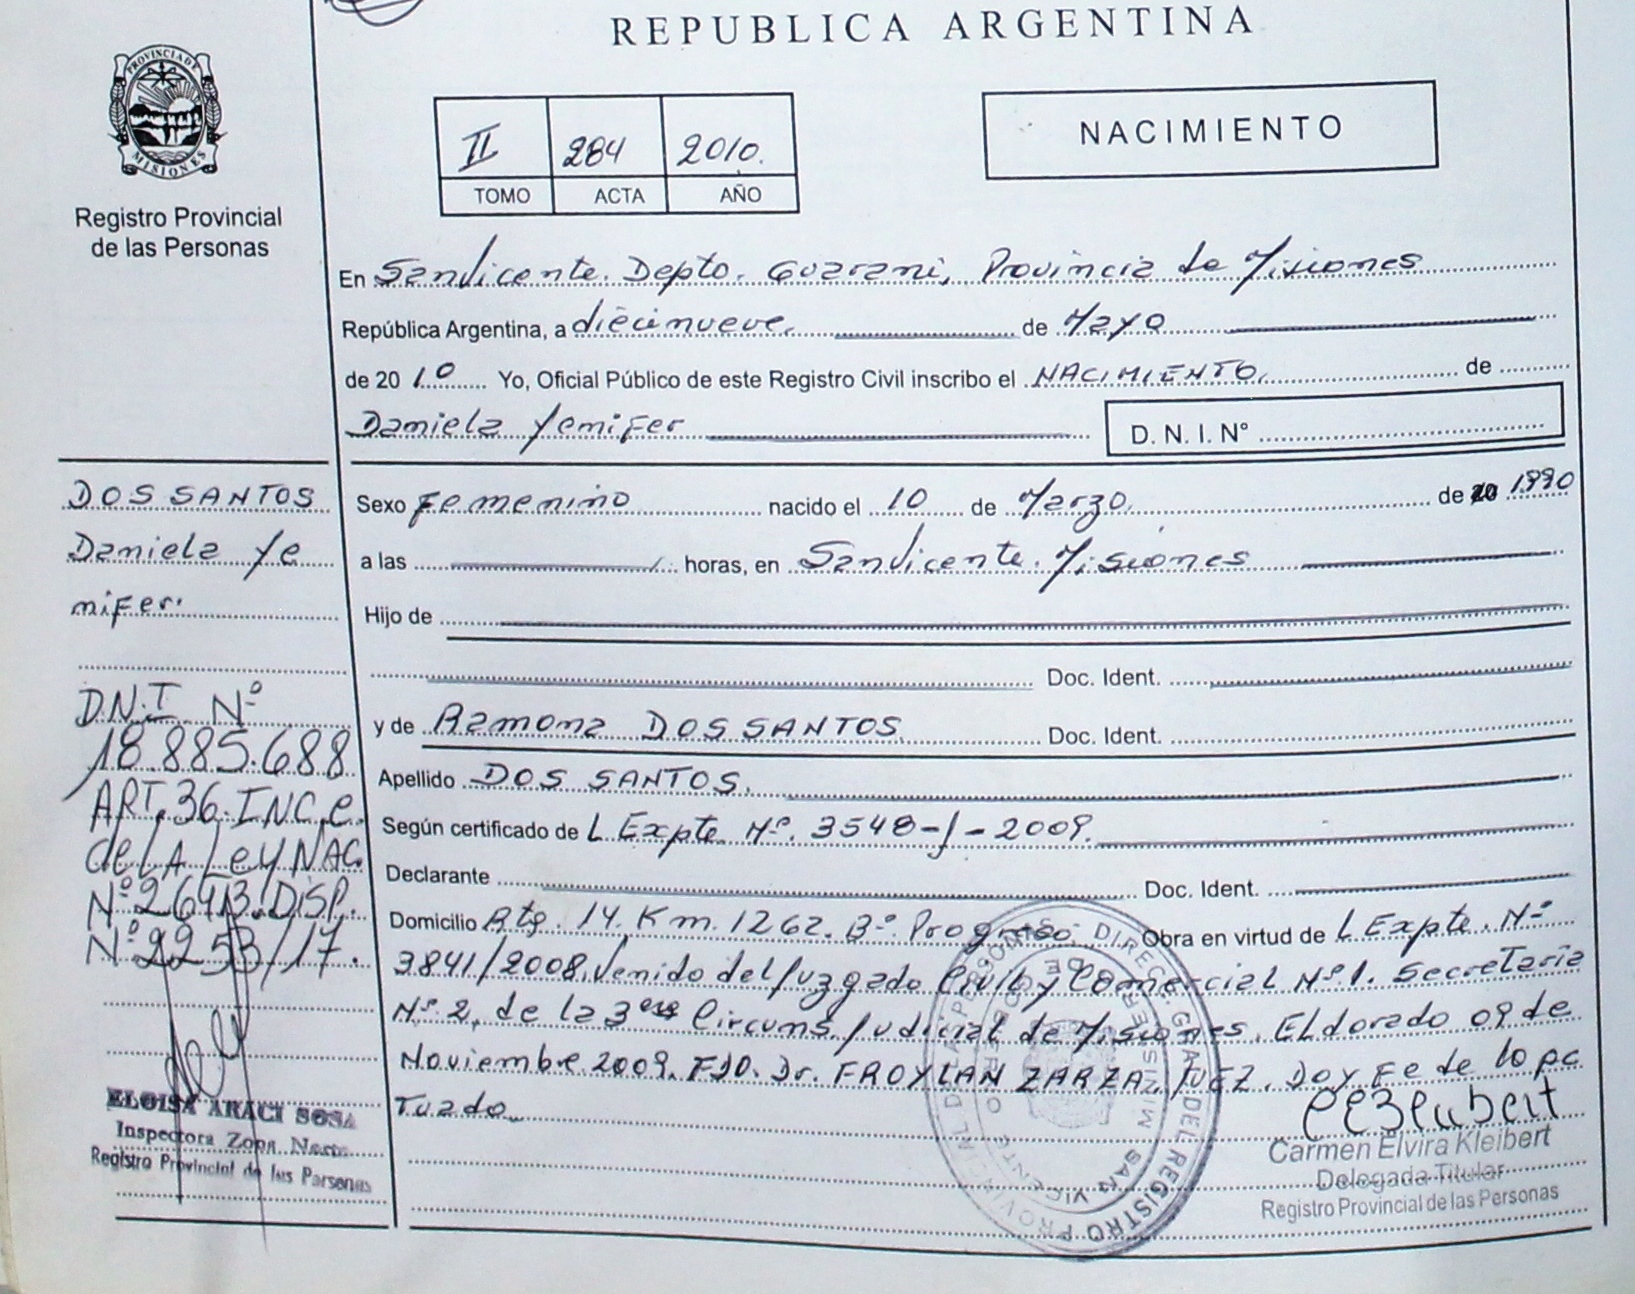 REPUBLICA ARGENTINA
PROVINCIA DE
MISIONES
Registro Provincial
de las Personas
II 284 2010.
TOMO ACTA AÑO
NACIMIENTO
En San Vicente. Depto. Guarani, Provincia de Misiones
República Argentina, a diecinueve. de Mayo
de 2010 Yo, Oficial Público de este Registro Civil inscribo el NACIMIENTO. de
Daniela Yemifer D. N. I. N°
DOS SANTOS
Daniela Ye
mifer.
D.N.I Nº
18.885.688
ART. 36. INC. e.
de LA Ley NAC.
Nº 26413. DISP.
Nº 2253/17.
ELOISA ARACI SOSA
Inspectora Zona Norte
Registro Provincial de las Personas
Sexo Femenino nacido el 10 de Marzo. de 20 1990
a las horas, en San Vicente. Misiones
Hijo de
Doc. Ident.
y de Ramona DOS SANTOS. Doc. Ident.
Apellido DOS SANTOS.
Según certificado de L. Expte. Nº. 3548-J-2009.
Declarante Doc. Ident.
Domicilio Rta. 14. Km. 1262. Bº Progreso. Obra en virtud de L. Expte. Nº
3841/2008. Venido del Juzgado Civil y Comercial Nº 1. Secretaria
Nº. 2, de la 3era Circuns. Judicial de Misiones. Eldorado 09 de
Noviembre 2009. FDO. Dr. FROYLAN ZARZA, JUEZ. Doy Fe de lo ac
Tuado.
Carmen Elvira Kleibert
Delegada Titular
Registro Provincial de las Personas